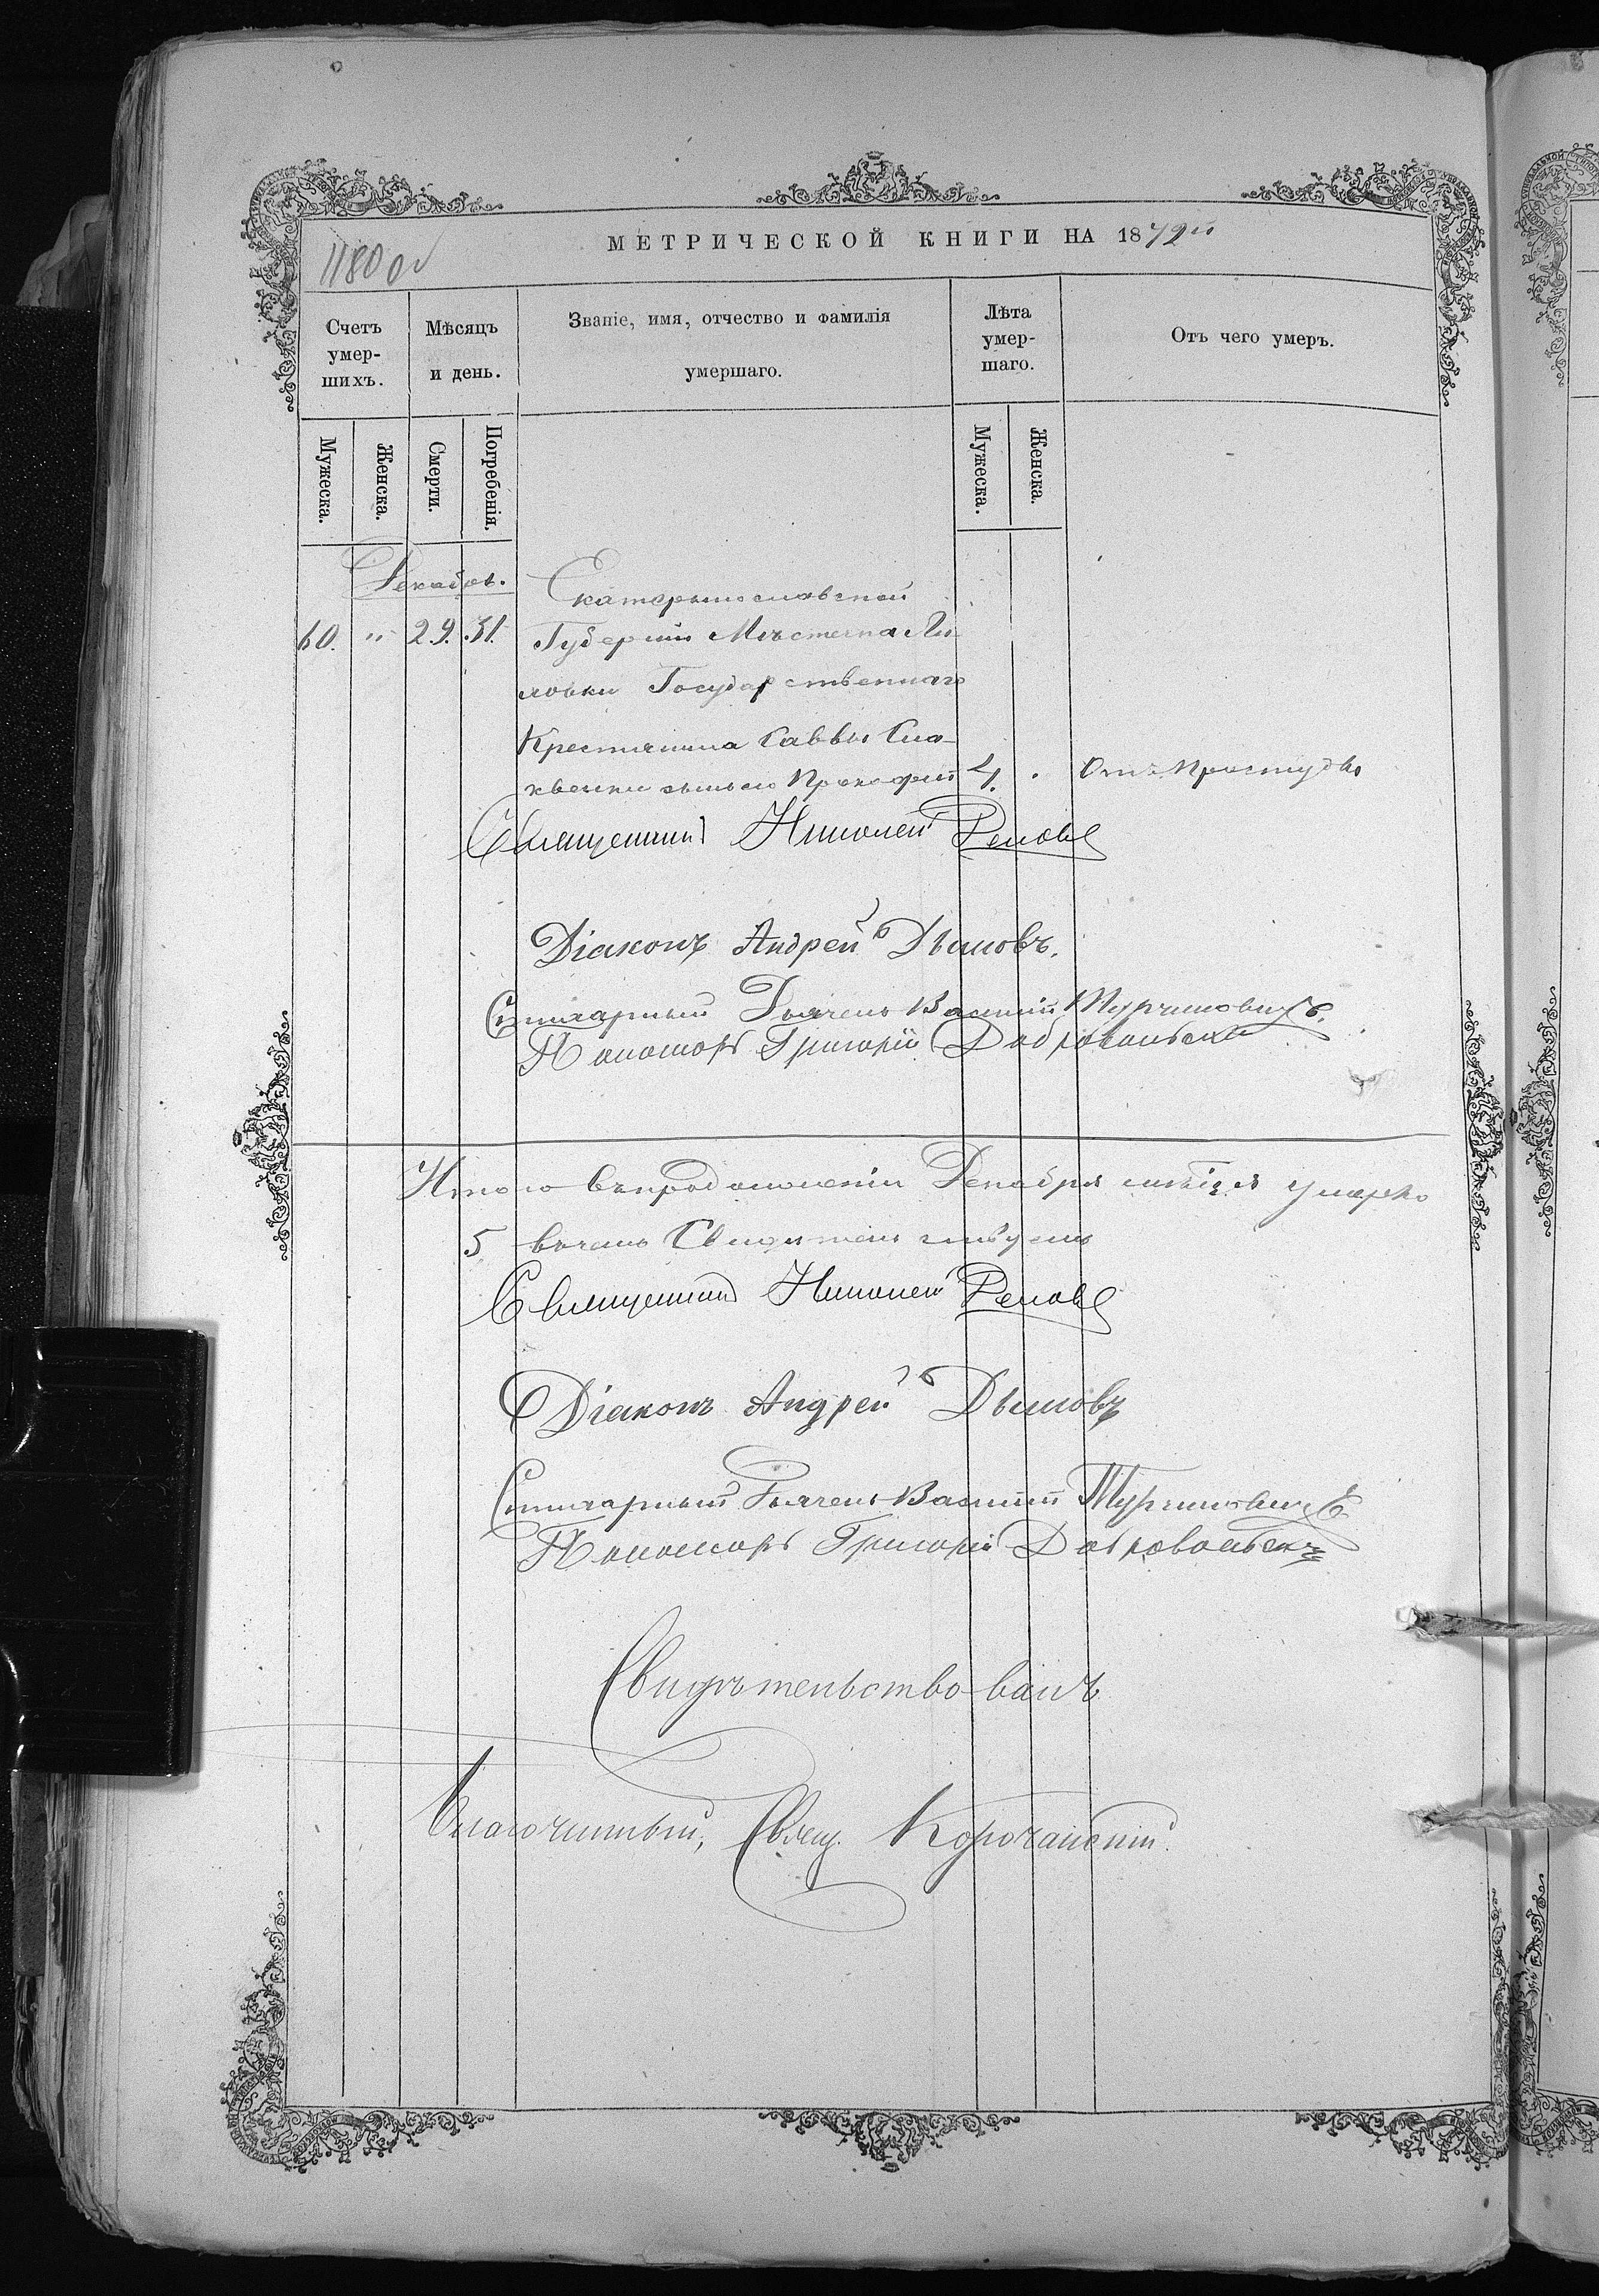 1180 об
МЕТРИЧЕСКОЙ КНИГИ НА 1872й
Счетъ умер-шихъ.
Мѣсяцъ и день.
Званіе, имя, отчество и фамилія умершаго.
Лѣта умер-шаго.
Отъ чего умеръ.
Мужеска.
Женска.
Смерти.
Погребенія.
Мужеска.
Женска.
Декабрь.
Екатеринославской
60. " 29. 31. Губерніи Мѣстечка
Государственнаго
Крестьянина Саввы
сынъ Прокофій 4. Отъ простуды
Священникъ Николай
Діаконъ Андрей Дымовъ.
Стихарный Дьячекъ Василій Турчиновичъ.
Пономарь Григорій Добровольскій
Итого въ продолженіи Декабря мѣсяца умерло
5 въ чемъ
Священникъ Николай
Діаконъ Андрей Дымовъ
Стихарный Дьячекъ Василій Турчиновичъ
Пономарь Григорій Добровольскій
Свидѣтельство-валъ
Благочинный, Свящ. Корочанскій.